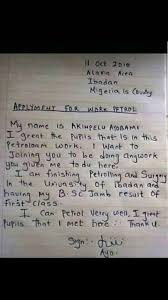 11 Oct 2010
Alaria Area
Ibadan
Nigeria is County
APPLYMENT FOR WORK PETROL
My name is AKINPELU AYOBAMI
I greet the pupils that is in this
Petroleam work. I want to
Joining you to be doing angwork
you given me to do here.
I am finishing Petrolling and Surgery
in the Univursity of Ibadan and
having my B.SC Jamb result of
first class.
I can Petrol very well, I greet
pupils that I met here: Thank U
Sign:-
Ayo.